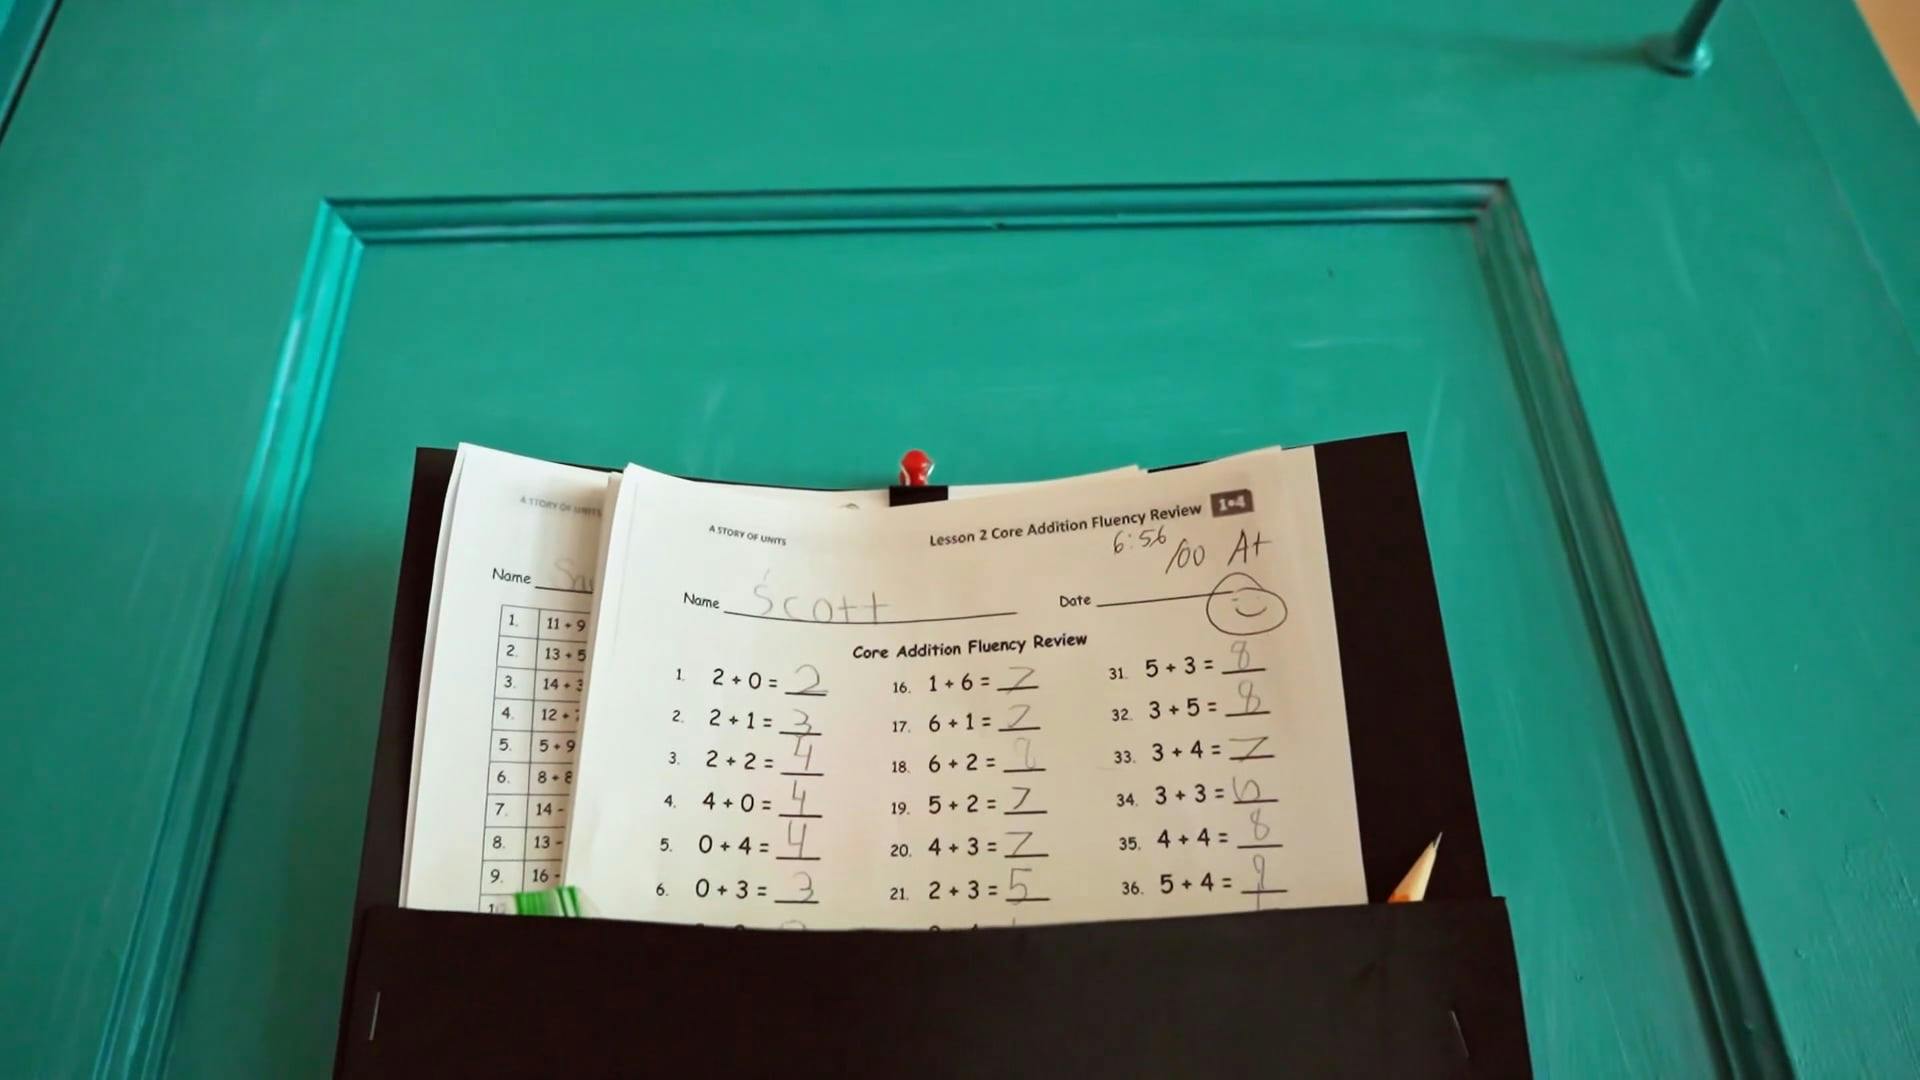 A STORY OF UNITS
Name
1. 11 + 9
2. 13 + 5
3. 14 + 3
4. 12 +
5. 5 + 9
6. 8 + 8
7. 14 -
8. 13 -
9. 16 -
A STORY OF UNITS
Lesson 2 Core Addition Fluency Review 1•4
6:56 100 A+
Name Scott Date
Core Addition Fluency Review
1. 2 + 0 = 2
2. 2 + 1 = 3
3. 2 + 2 = 4
4. 4 + 0 = 4
5. 0 + 4 = 4
6. 0 + 3 = 3
16. 1 + 6 = 7
17. 6 + 1 = 7
18. 6 + 2 = 8
19. 5 + 2 = 7
20. 4 + 3 = 7
21. 2 + 3 = 5
31. 5 + 3 = 8
32. 3 + 5 = 8
33. 3 + 4 = 7
34. 3 + 3 = 6
35. 4 + 4 = 8
36. 5 + 4 = 9